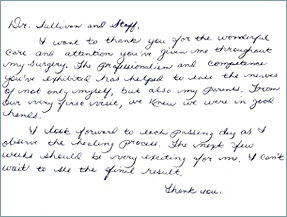 Dr. Sullivan and Staff,
I want to thank you for the wonderful
care and attention you've given me throughout
my surgery. The professionalism and competence
you've exhibited has helped to ease the nerves
of not only myself, but also my parents. From
our very first visit, we knew we were in good
hands.
I look forward to each passing day as I
observe the healing process. The next few
weeks should be very exciting for me. I can't
wait to see the final result.
Thank you.